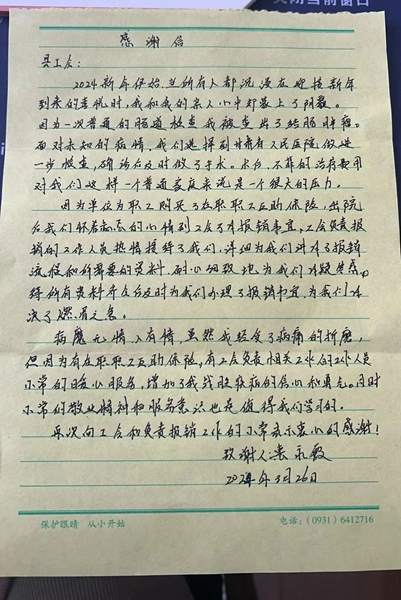 感谢信
县工会：
2024新年伊始，当所有人都沉浸在迎接新年
到来的喜悦时，我和我的家人心中却蒙上了阴霾。
因为一次普通的肠道检查我被查出了结肠肿瘤。
面对未知的病情，我们选择到甘肃省人民医院做进
一步检查，确诊后及时做了手术。术后，不菲的治疗费用
对我们这样一个普通家庭来说是一个很大的压力。
因为单位为职工购买了在职职工互助保险，出院
后我们怀着忐忑的心情到工会了解报销事宜，工会负责报
销的工作人员热情接待了我们，详细为我们讲解了报销
流程和所需要的资料，耐心细致地为我们答疑
所有资料齐全后及时为我们办理了报销事宜，为我们解
决了燃眉之急。
病魔无情人有情，虽然我经受了病痛的折磨，
但因为有在职职工互助保险，有工会负责相关工作的工作人员
小常的暖心服务，增加了我战胜疾病的信心和勇气。同时
小常的敬业精神和服务意识也是值得我们学习的。
再次向工会和负责报销工作的小常表示衷心的感谢！
致谢人：
2024年3月26日
保护眼睛 从小开始
电话：（0931）6412716
关闭当前窗口